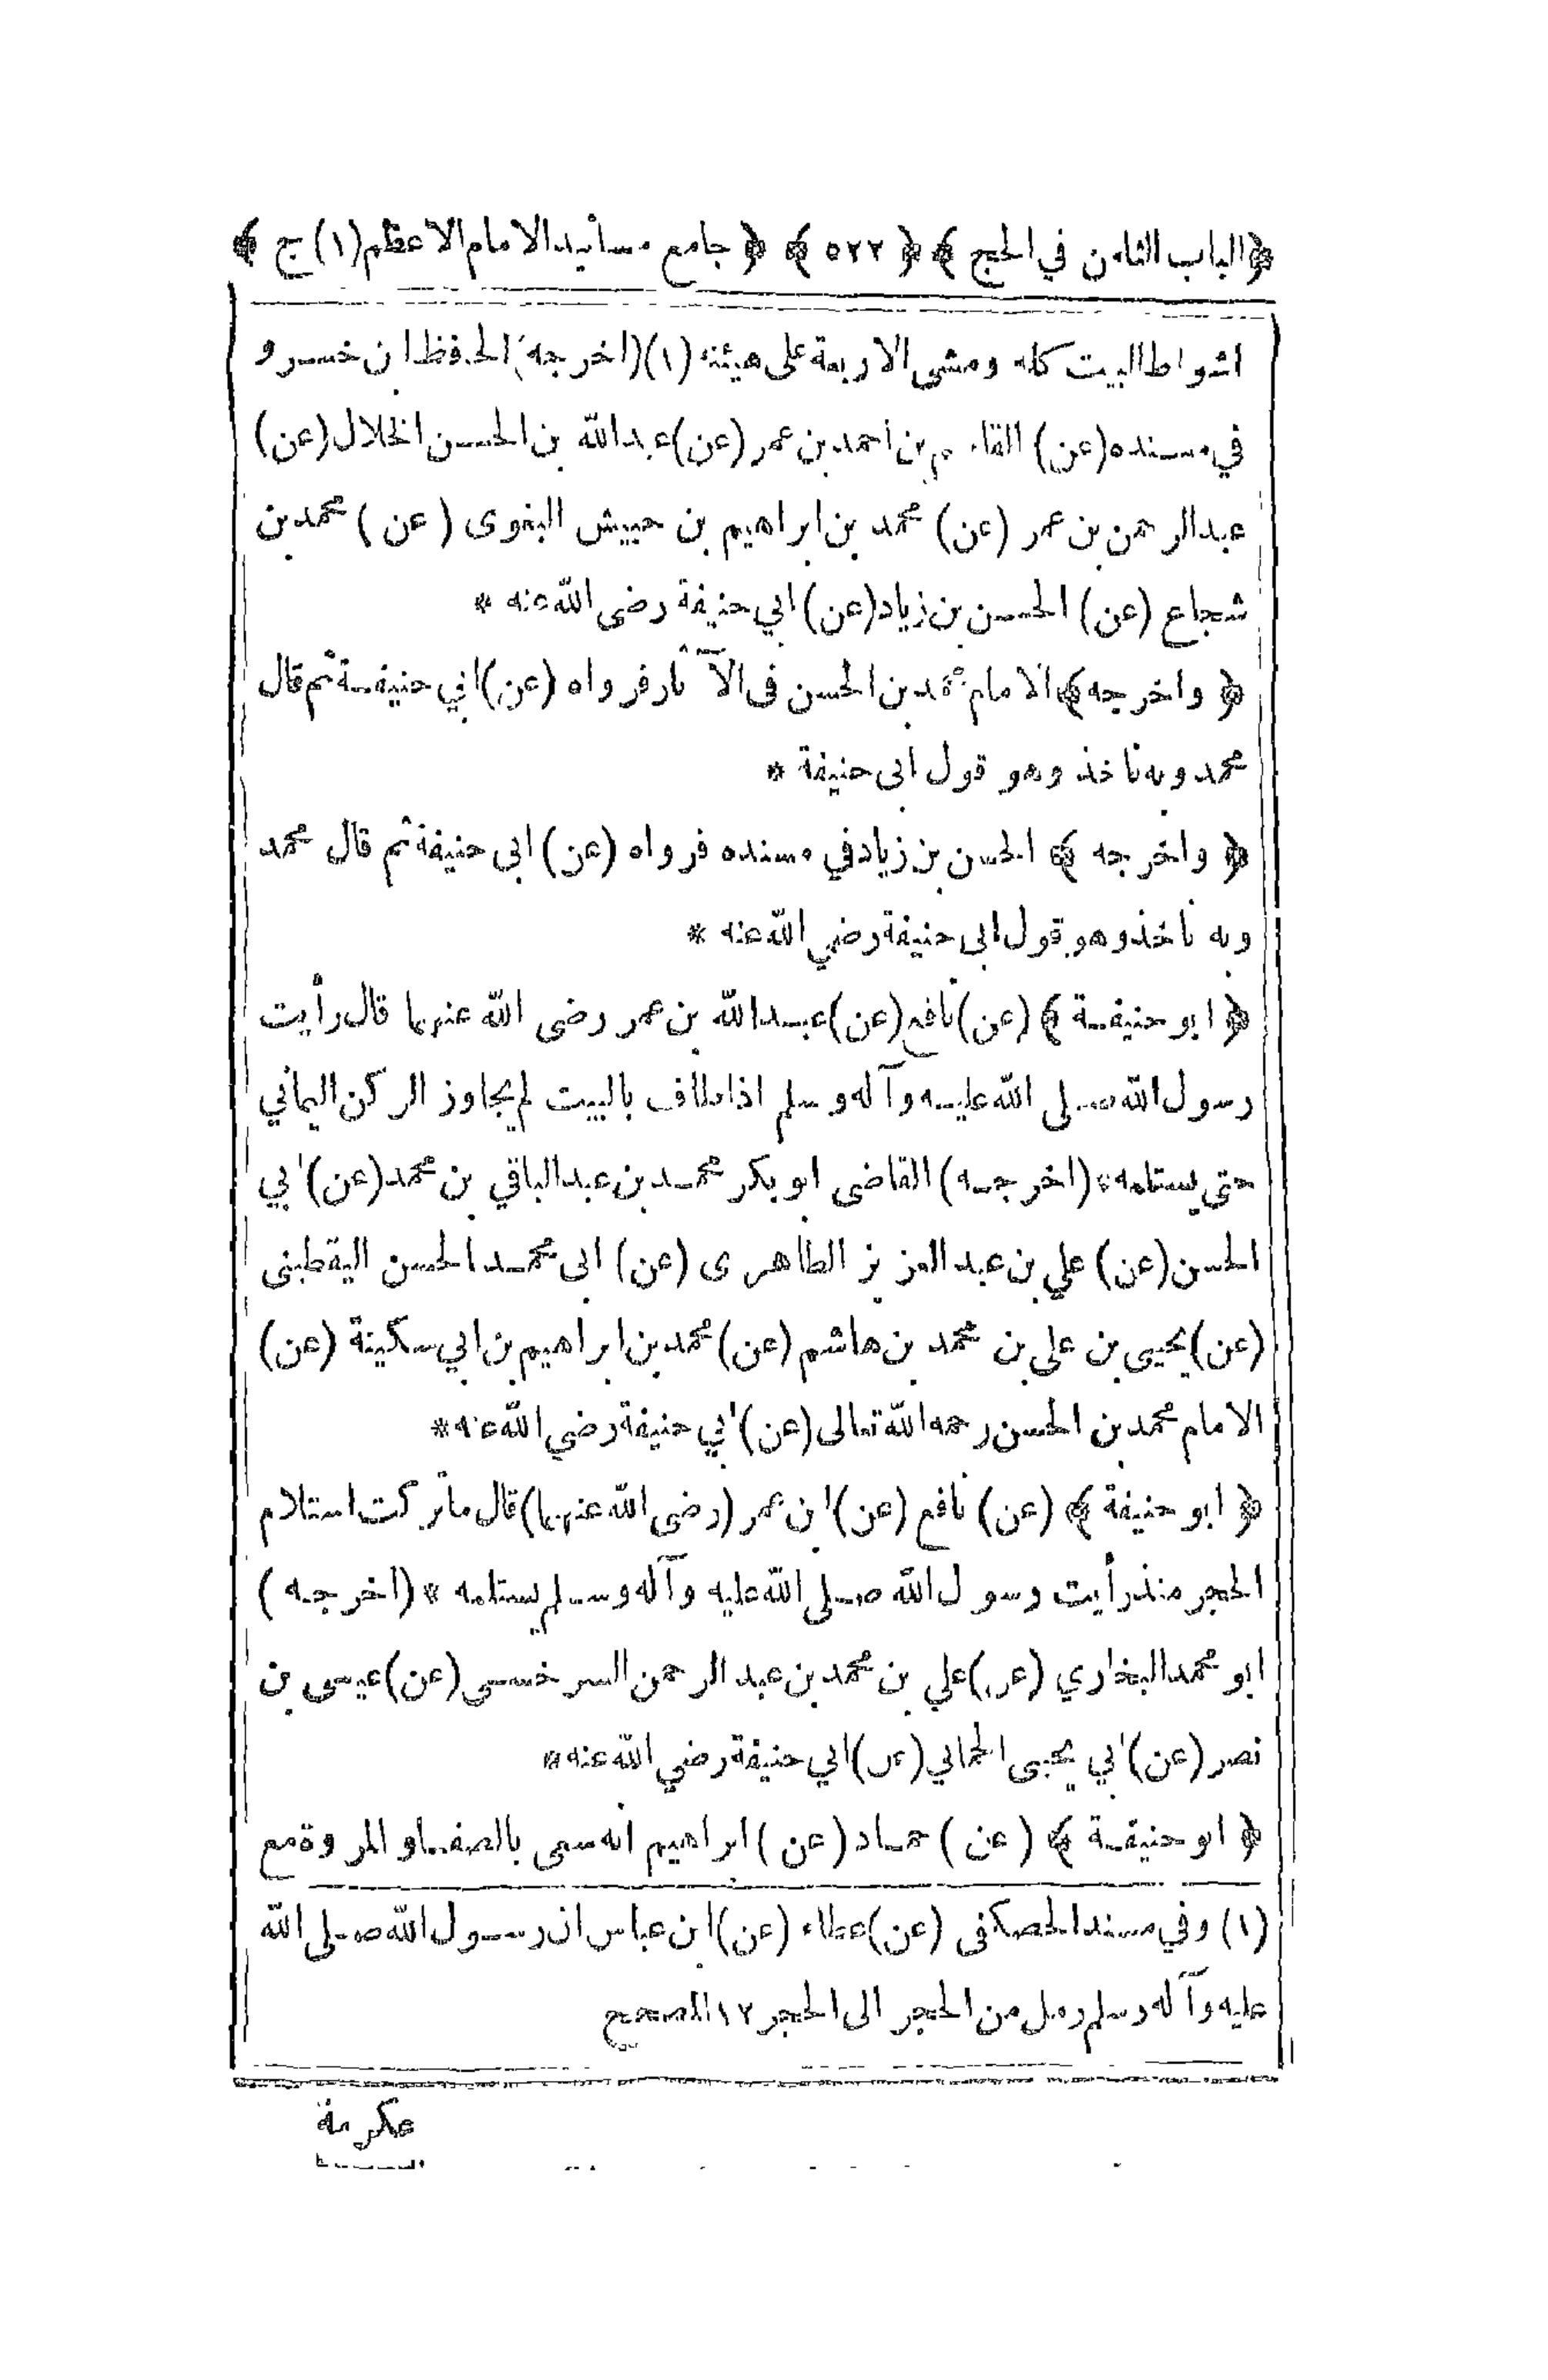 ﴿الباب الثامن في الحج﴾ ﴿٥٢٢﴾ ﴿جامع مسانيد الامام الاعظم(١)ج﴾
اشواط البيت كله ومشى الاربعة على هيئته (١)(اخرجه) الحافظ ابن خسرو
في مسنده (عن) القاسم بن احمد بن عمر (عن) عبدالله بن الحسن الخلال (عن)
عبدالرحمن بن عمر (عن) محمد بن ابراهيم بن حبيش البغوى (عن) محمد بن
شجاع (عن) الحسن بن زياد (عن) ابي حنيفة رضى الله عنه *
﴿واخرجه﴾ الامام محمد بن الحسن فى الآثار فرواه (عن) ابي حنيفة ثم قال
محمد وبه ناخذ وهو قول ابى حنيفة *
﴿واخرجه﴾ الحسن بن زياد في مسنده فرواه (عن) ابى حنيفة ثم قال محمد
وبه ناخذ وهو قول ابى حنيفة رضي الله عنه *
﴿ابو حنيفة﴾ (عن) نافع (عن) عبدالله بن عمر رضى الله عنهما قال رأيت
رسول الله صلى الله عليه وآله وسلم اذا طاف بالبيت لم يجاوز الركن اليماني
حتى يستلمه * (اخرجه) القاضى ابو بكر محمد بن عبدالباقي بن محمد (عن) ابي
الحسن (عن) علي بن عبدالعزيز الطاهرى (عن) ابى محمد الحسن اليقطينى
(عن) يحيى بن علي بن محمد بن هاشم (عن) محمد بن ابراهيم بن ابي سكينة (عن)
الامام محمد بن الحسن رحمه الله تعالى (عن) ابي حنيفة رضي الله عنه *
﴿ابو حنيفة﴾ (عن) نافع (عن) ابن عمر (رضى الله عنهما) قال ما تركت استلام
الحجر منذ رأيت رسول الله صلى الله عليه وآله وسلم يستلمه * (اخرجه)
ابو محمد البخاري (عن) علي بن محمد بن عبدالرحمن السرخسى (عن) عيسى بن
نصر (عن) ابي يحيى الحماني (عن) ابي حنيفة رضي الله عنه *
﴿ابو حنيفة﴾ (عن) حماد (عن) ابراهيم انه سعى بالصفا والمروة مع
(١) وفي مسند الحصكفى (عن) عطاء (عن) ابن عباس ان رسول الله صلى الله
عليه وآله وسلم رمل من الحجر الى الحجر ١٢ المصحح
عكرمة